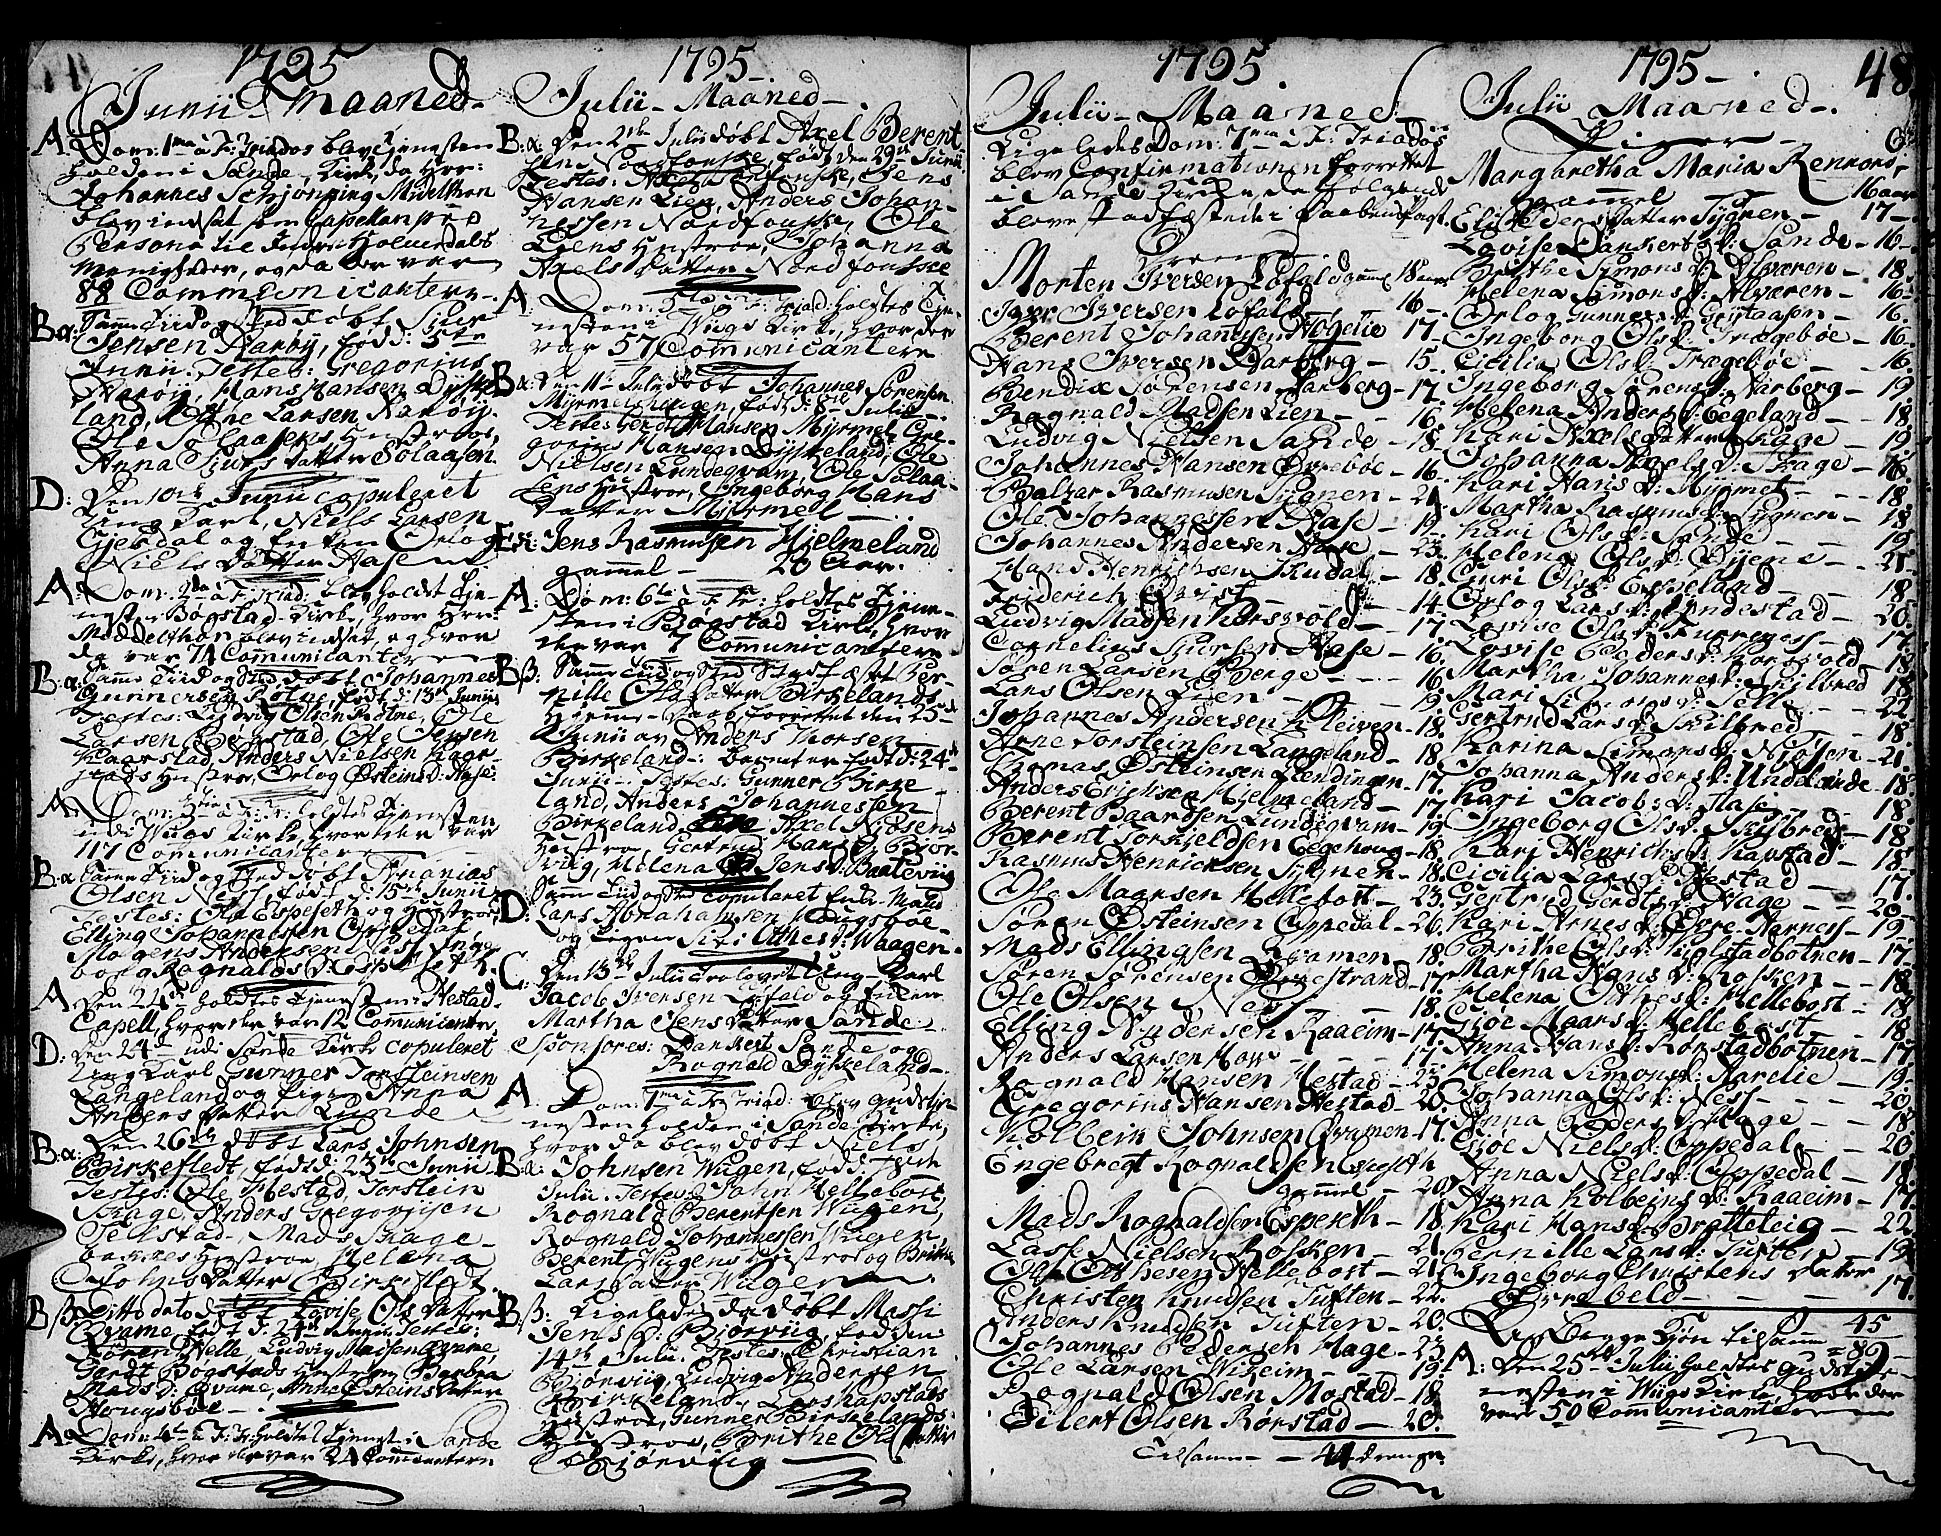 1795
Junii Maaned
A. Dom: 1ma à F: Triados blev Tjenesten
holden i Sande Kirke, da Herr
Johannes Schjønning Midelthon
blev indsat som Capelan pro
Persona til Indre Holmedals
Menigheder, og da der var
88 Communicantere
B:α: Samme Tiid og Sted døbt Siur
Jensen Narøy, født d: 5te
Junii. Testes: Gregorius
Narøy, Hans Hansen Dyske
land, Larsen Narøy,
Ole Solaasens Hustroe,
Anna Siurs datter Solaasen.
D: Den 10de Junii copuleret
Ung Karl, Niels Larsen
Gjesdal og Enken Orlog
Niels datter Aasen
A: Dom: 2da à F: Triad: blev holdt Tje-
nesten Bøgstad Kirke, hvor Herr
Middelthon blev indsat, og hvor
da var 71 Communicanter
B:α: Samme Tiid og Sted døbt Johannes
Gunnersen Rotne, født d: 13de Junii
Testes: Ludvig Olsen Rotne, Ole
Larsen Bøgstad, Ole Jensen
Kaarstad, Anders Nielsen Kaar-
stads Hustroe, Orlog Østeins d: Aase
A: Dom: 3tia à F: Tr: holdtes Tjenesten
udi Wiigs Kirke hvor der var
117 Communicantere
B:α Samme Tiid og Sted døbt Ananias
Olsen Ness, født d: 15de Junii
Testes: Ole Espeseth og Hustroe,
Elling Johannesen Oppedal
Mogens Andersen Ness, Inge
borg Rognalds d: Espeseth.
A Den 24de holdtes Tjenesten i Hestad
Capell, hvor der var 12 Communicantere
D: Den 24de udi Sande Kirke copuleret
Ung Karl Gunner Torsteinsen
Langeland og Pigen Anna
Anders datter Lunde
B:α: Den 26de døbt Lars Johnsen
Birkefledt, født d: 23de Junii
Testes: Ole Hestad, Torstein
Skage, Anders Gregorsen
Sellstad, Mads Skage-
backes Hustroe, Helena
Johns datter Birkeflet.
B:β: Ditto dato døbt Lovise Ols datter
Qvame, født d: 24de Junii Testes:
Søren Helle, Ludvig Madsen Qvame,
Gerdt Bøgstads Hustroe, Barbra
Mads d: Qvame, Anne Østeins datter
Hougsbøe
A. Dom: 4ta à F: Tr: holdtes Tjenest: i Sande
Kirke, hvor der var 21 Communicantere
1795
Julii Maaned
B:α: Den 2de Julii døbt Axel Berent
sen Nordfouske, født den 29de Junii
Testes: Axel Nordfouske, Jens
Hansen Lien, Anders Johan-
nessen Nordfouske, Ole
Liens Hustroe, Johanna
Axels datter Nordfouske
A: Dom: 5ta à F: Triad: holdtes Tje-
nesten i Wiigs Kirke, hvor der
var 57 Communicantere
B:α: Den 11te Julii døbt Johannes Sørensen
Myrmelshougen, født d: 8de Julii.
Testes: Gerdt Hansen Myrmel, Gre-
gorius Hansen Dyskeland, Ole
Nielsen Lundeqvam, Ole Solaa-
sens Hustroe, Ingeborg Hans
datter Myrmel
E: Jens Rasmusen Hjelmeland
gammel - 20 Aar.
A: Dom: 6ta à F: Tr: holdtes Tjene-
sten i Bøgstad Kirke, hvor
der var 7 Communicantere
B:β: Samme Tiid og Sted Stadfæstet Per-
nille Ols datter Birkelands
Hjemme-Daab forrettet den 25de
Junii av Anders Thorsen
Birkeland. Barnet er født d: 24de
Junii. Testes: Gunner Birke
land, Anders Johannessen
Birkeland, Axel Nielsens
Hustroe, Gertrud Hans d: Bjør-
viig, Helena Jens d: Baateviig
D: Samme Tiid og Sted copuleret Enke-Mand
Lars Abrahamsen Hougsbøe
og Pigen Siri Othes d: Waagen.
C: Den 13de Julii Trolovet Ung-Karl
Jacob Iversen Løfald og Pigen
Martha Jens datter Sande.
Sponsores: Dankert Sande og
Rognald Dyskeland.
A Dom: 7ma à F: Triad: blev Gudstje-
nesten holden i Sande Kirke,
hvor da blev døbt Niels
B:α: Johnsen Wiigen, født d:
Julii. Testes: John Hellebost,
Rognald Berentsen Wiigen,
Rognald Johannessen Wiigen,
Berent Wiigens Hustroe og Brithe
Lars datter Wiigen
B:β: Ligeledes da døbt Massi
Jens d: Bjørviig, født den
14de Julii. Testes: Christian
Bjørviig, Ludvig Andersen
Birkeland, Lars Hapstads
Hustroe, Gunner Birkelands
Hustroe, Brithe Ols datter
Bjørviig
1795
Julii Maaned
Ligeledes Dom: 7ma à F: Triados
blev Confirmationen forrettet
i Sande Kirke, da følgende
bleve stadfæstede i Daabens Pagt.
Drenge
Morten Iversen Løfald gammel 18 aar
Iver Iversen Løfald - 16 -
Berent Johannesen Høgelie 17.
Hans Iversen Darberg - 15.
Bendix Sørensen Aarberg - 17.
Rognald Madsen Lien - 16.
Ludvig Nielsen Sande - 18.
Johannes Hansen Øvrebøe - 16.
Baltzar Rasmusen Sygnen - 21.
Ole Johannessen Aase - 19.
Johannes Andersen Aase - 23.
Hans Henrichsen Skudal - 18.
Friderich Qvist - 14.
Ludvig Madsen Korsvold - 17.
Cornelius Siursen Aase - 16.
Søren Larsen Berge - 16.
Lars Olsen Lien - 19.
Johannes Andersen Kleiven - 18.
Arne Torsteinsen Langeland - 18.
Thomas Østeinsen Lendingen - 17.
Anders Erichsen Hjelmeland - 17.
Berent Baardsen Lundeqvam - 19.
Berent Torkieldsen Egehoug - 18.
Rasmus Henricksen Sygnen - 18.
Ole Maarsen Hellebost - 23.
Søren Østeinsen Oppedal - 26.
Mads Ellingsen Qvamen 18.
Søren Sørensen Øvrestrand - 17.
Ole Olsen Ness - 18.
Elling Andersen Raaeim - 17.
Anders Larsen Hove - 17.
Rognald Hansen Hestad - 23.
Gregorius Hansen Hestad - 20.
Kolbein Johnsen Qvamen - 17.
Engebregt Rognaldsen Espeseth
gammel - 20.
Mads Rognaldsen Espeseth - 18.
Lasse Nielsen Rossken - 21.
Ole Othesen Hellebost - 21.
Christen Knudsen Tuften - 22.
Anders Knudsen Tuften - 20.
Johannes Pedersen Hage - 23.
Ole Larsen Wixeim - 19.
Rognald Olsen Mostad - 18.
Eilert Olsen Rørstad - 20.
Tilsammen - 44 drenge.
1795 - 48
Julii Maaned
Piger
Margaretha Maria Rennord,
gammel 16 aar
Elisabeth datter Sygnen - 17 -
Lovise Dankerts d: Sande - 16 -
Brithe Simons d: Alværen - 18.
Helena Simons d: Alværen - 16 -
Orlog Gunners d: Grytaasen - 16.
Ingeborg Ols d: Trægebøe - 16 -
Cicilia Ols d: Trægebøe - 16.
Ingeborg Sørens d: Aarberg - 19.
Helena Anders d: Egeland - 18.
Kari Axels datter Skage - 19.
Johanna Axels d: Skage - 16.
Kari Hans d: Myrmel - 18.
Martha Rasmus d: Sygnen - 18.
Kari Ols d: Sande - 19.
Helena Ols d: - 21.
Guri Ols d: Espeland - 18.
Orlog Lars d: Indestad - 20.
Lovise Ols d: Furreness - 17.
Lovise Peders d: Korsvold - 18.
Martha Johannes d: Skilbred 18.
Mari d: Selle - 22.
Gertrud Lars d: Skilbred - 18.
Karina Simons d: Nedsen - 21.
Johanna Anders d: Undelande - 18.
Kari Jacobs d: Aase - 18.
Ingeborg Ols d: Skilbred - 18
Kari Henrichs d: Hapstad - 18.
Cicilia Lars d: Hestad - 17.
Gertrud Gerdts d: Hage - 20.
Kari Arnes d: Øvre-Aarness - 19.
Brithe Ols d: Rørstadbotnen - 17.
Martha Hans d: Rossken - 18.
Helena Othes d: Hellebost - 18.
Gjøe Maars d: Hellebost - 18.
Anna Hans d: Rørstadbotnen - 17.
Helena Simons d: Aarelie - 19.
Johanna Ols d: Ness - 20.
Anna Peders d: Hage - 18.
Gjøe Niels d: Oppedal - 20.
Anna Niels d: Oppedal - 18.
Anna Kolbeins d: Raaeim - 17.
Kari Hans d: Bratteteig - 22.
Pernille Lars d: Tuften - 19.
Ingeborg Christens datter
- 17.
45
Er begge Kjøn tilsamm = 89 -
A: Den 25de Julii holdtes Gudstje-
nesten i Wiigs Kirke, hvor der
var 50 Communicantere